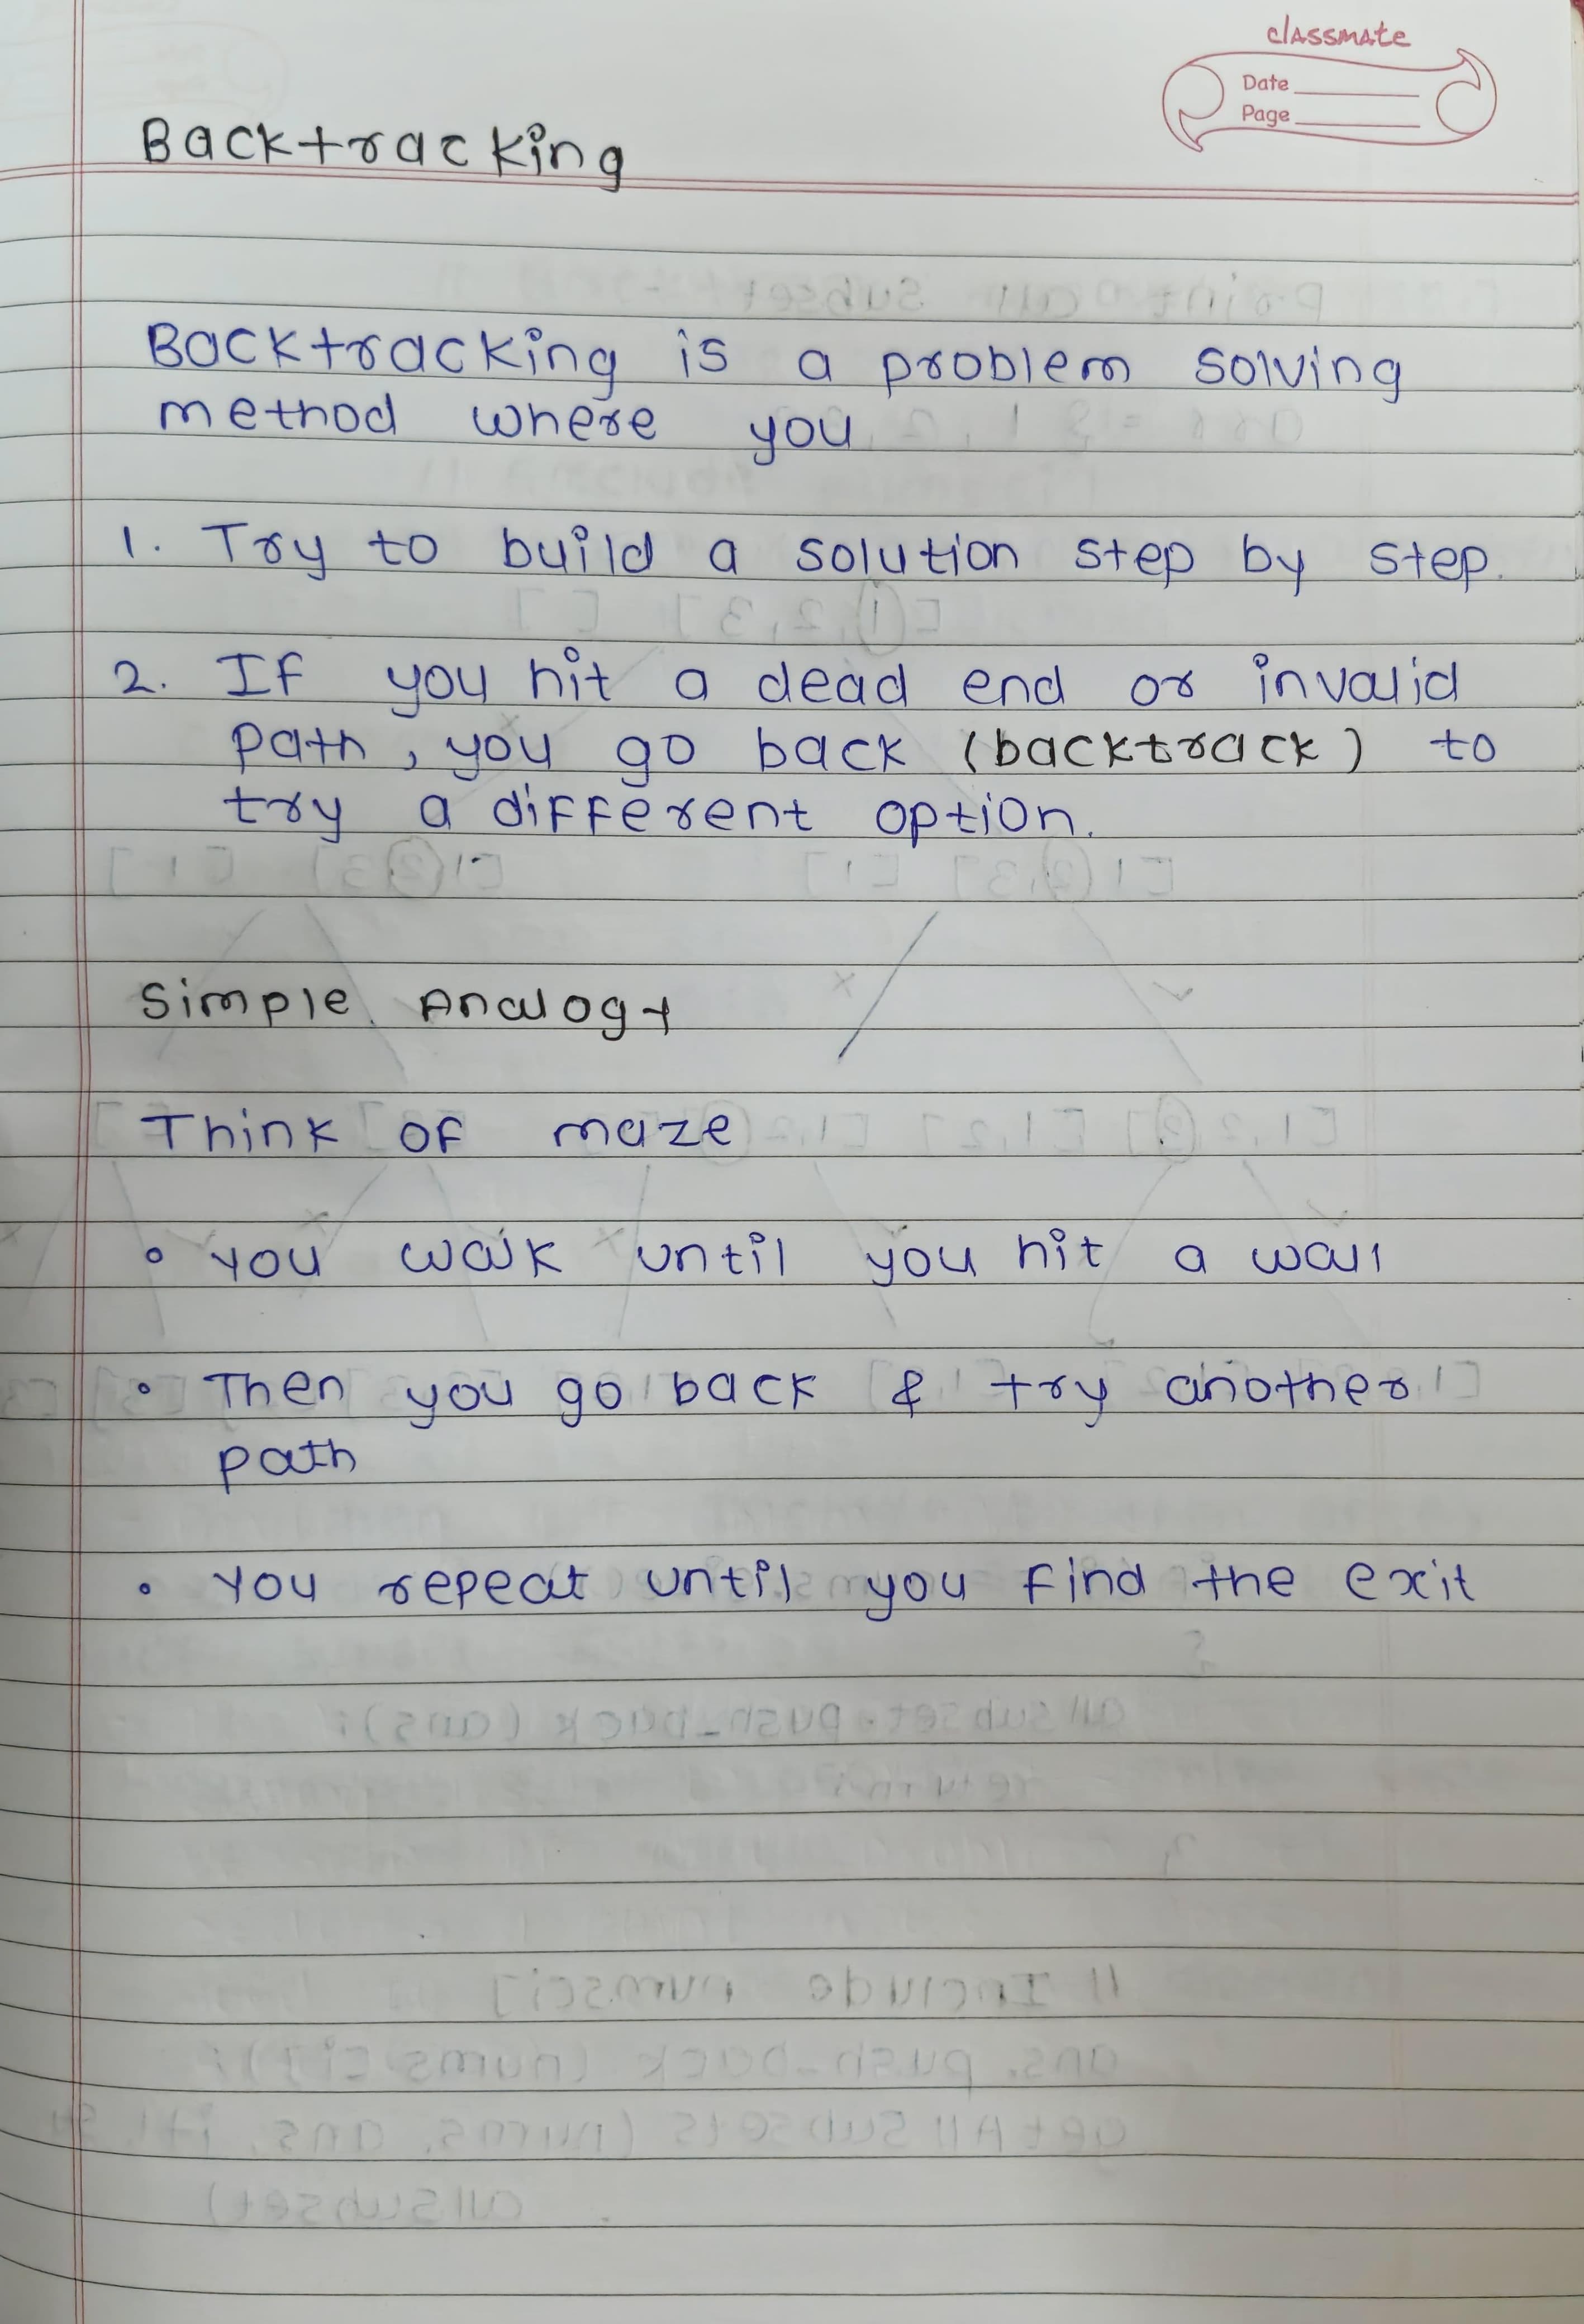 classmate
Date
Page
Backtracking
Backtracking is a problem solving
method where you
1. Try to build a solution step by step.
2. If you hit a dead end or invalid
path, you go back (backtrack) to
try a different option.
Simple Analogy
Think of maze
• You walk until you hit a wall
• Then you go back & try another
path
• You repeat until you find the exit